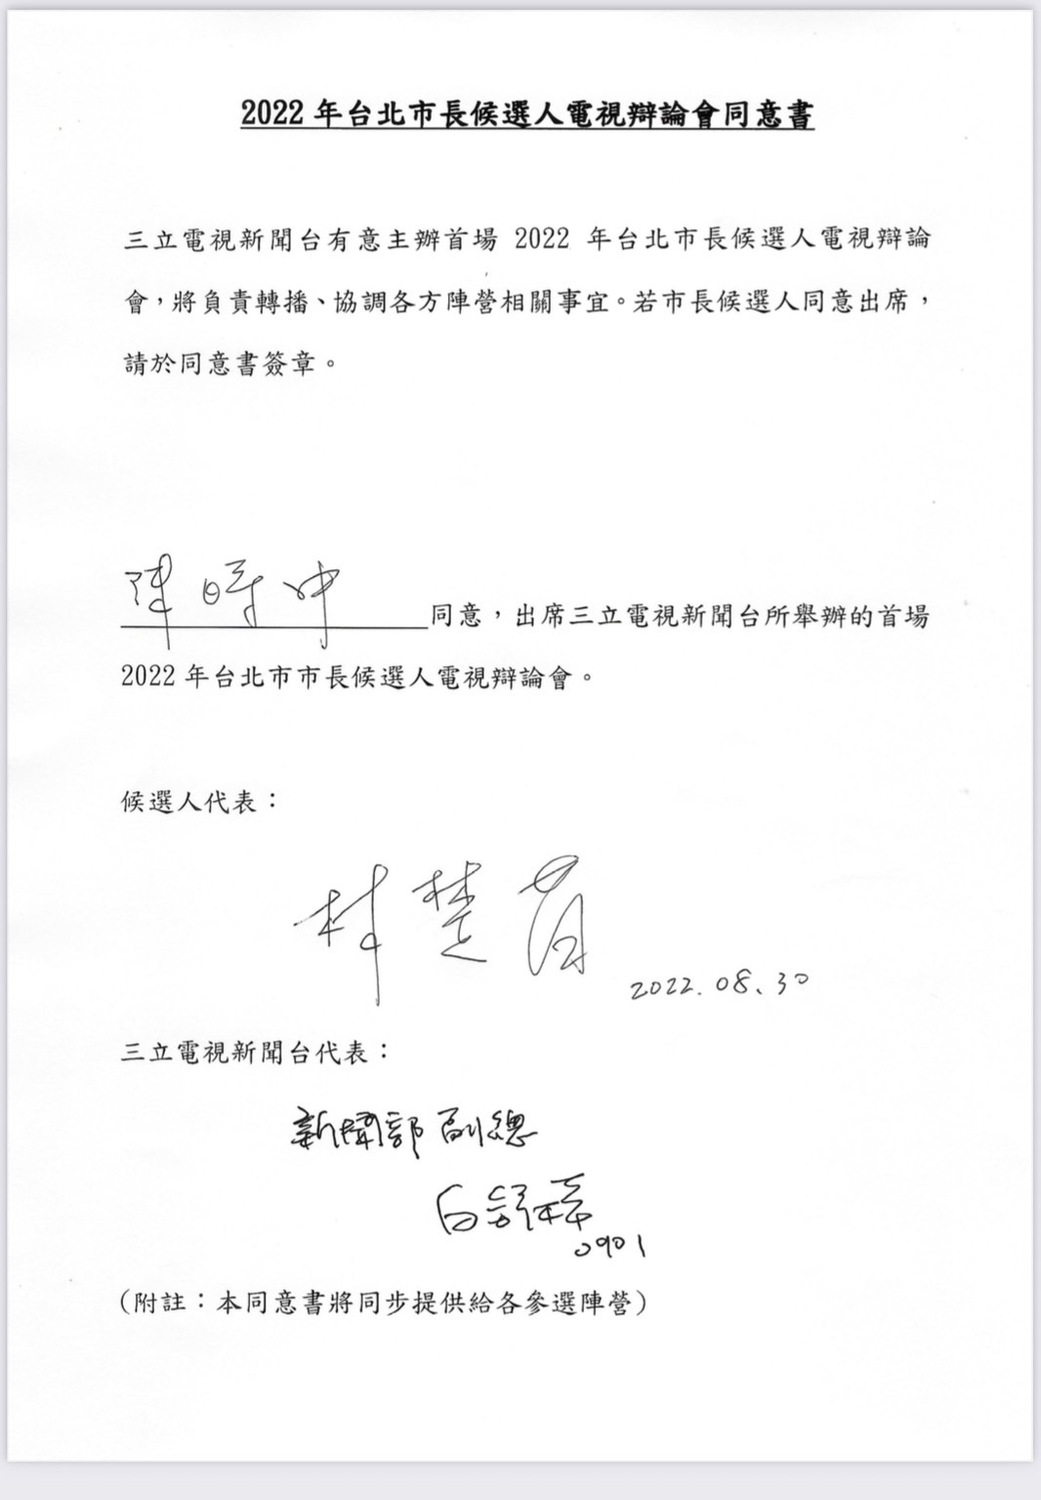 2022 年台北市長候選人電視辯論會同意書
三立電視新聞台有意主辦首場 2022 年台北市長候選人電視辯論
會，將負責轉播、協調各方陣營相關事宜。若市長候選人同意出席，
請於同意書簽章。
陳時中同意，出席三立電視新聞台所舉辦的首場
2022 年台北市市長候選人電視辯論會。
候選人代表：
林楚茵
2022.08.30
三立電視新聞台代表：
新聞部副總
白
0901
(附註：本同意書將同步提供給各參選陣營)